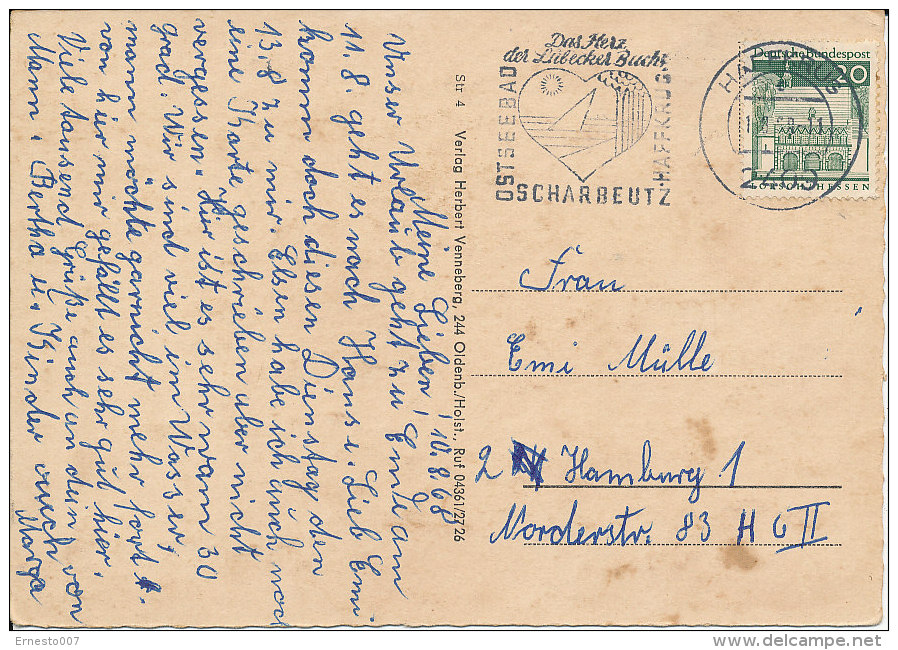 Meine Lieben! 10.8.68
Unser Urlaub geht zu Ende am
11.8. geht es nach Hause. Lieb Emi
komm doch diesen Dienstag den
13.8 zu mir. Elsen habe ich auch noch
eine Karte geschrieben aber nicht
vergessen. Hier ist es sehr warm 30
grad. Wir sind viel im Wasser,
mann möchte garnicht mehr fort.
von hir mir gefällt es sehr gut hier.
Viele tausend Grüße auch an dein von
Mann. Bertha u. Kinder
Marga
Str 4 Verlag Herbert Venneberg, 244 Oldenb./Holst., Ruf 04361/2726
Das Herz
der Lübecker Bucht
OSTSEEBAD
SCHARBEUTZ
HAFFKRUG
Deutsche Bundespost
20
LORSCH/HESSEN
Frau
Emi Mülle
2 Hamburg 1
Norderstr. 83 H 6 II
Ernesto007
www.delcampe.net